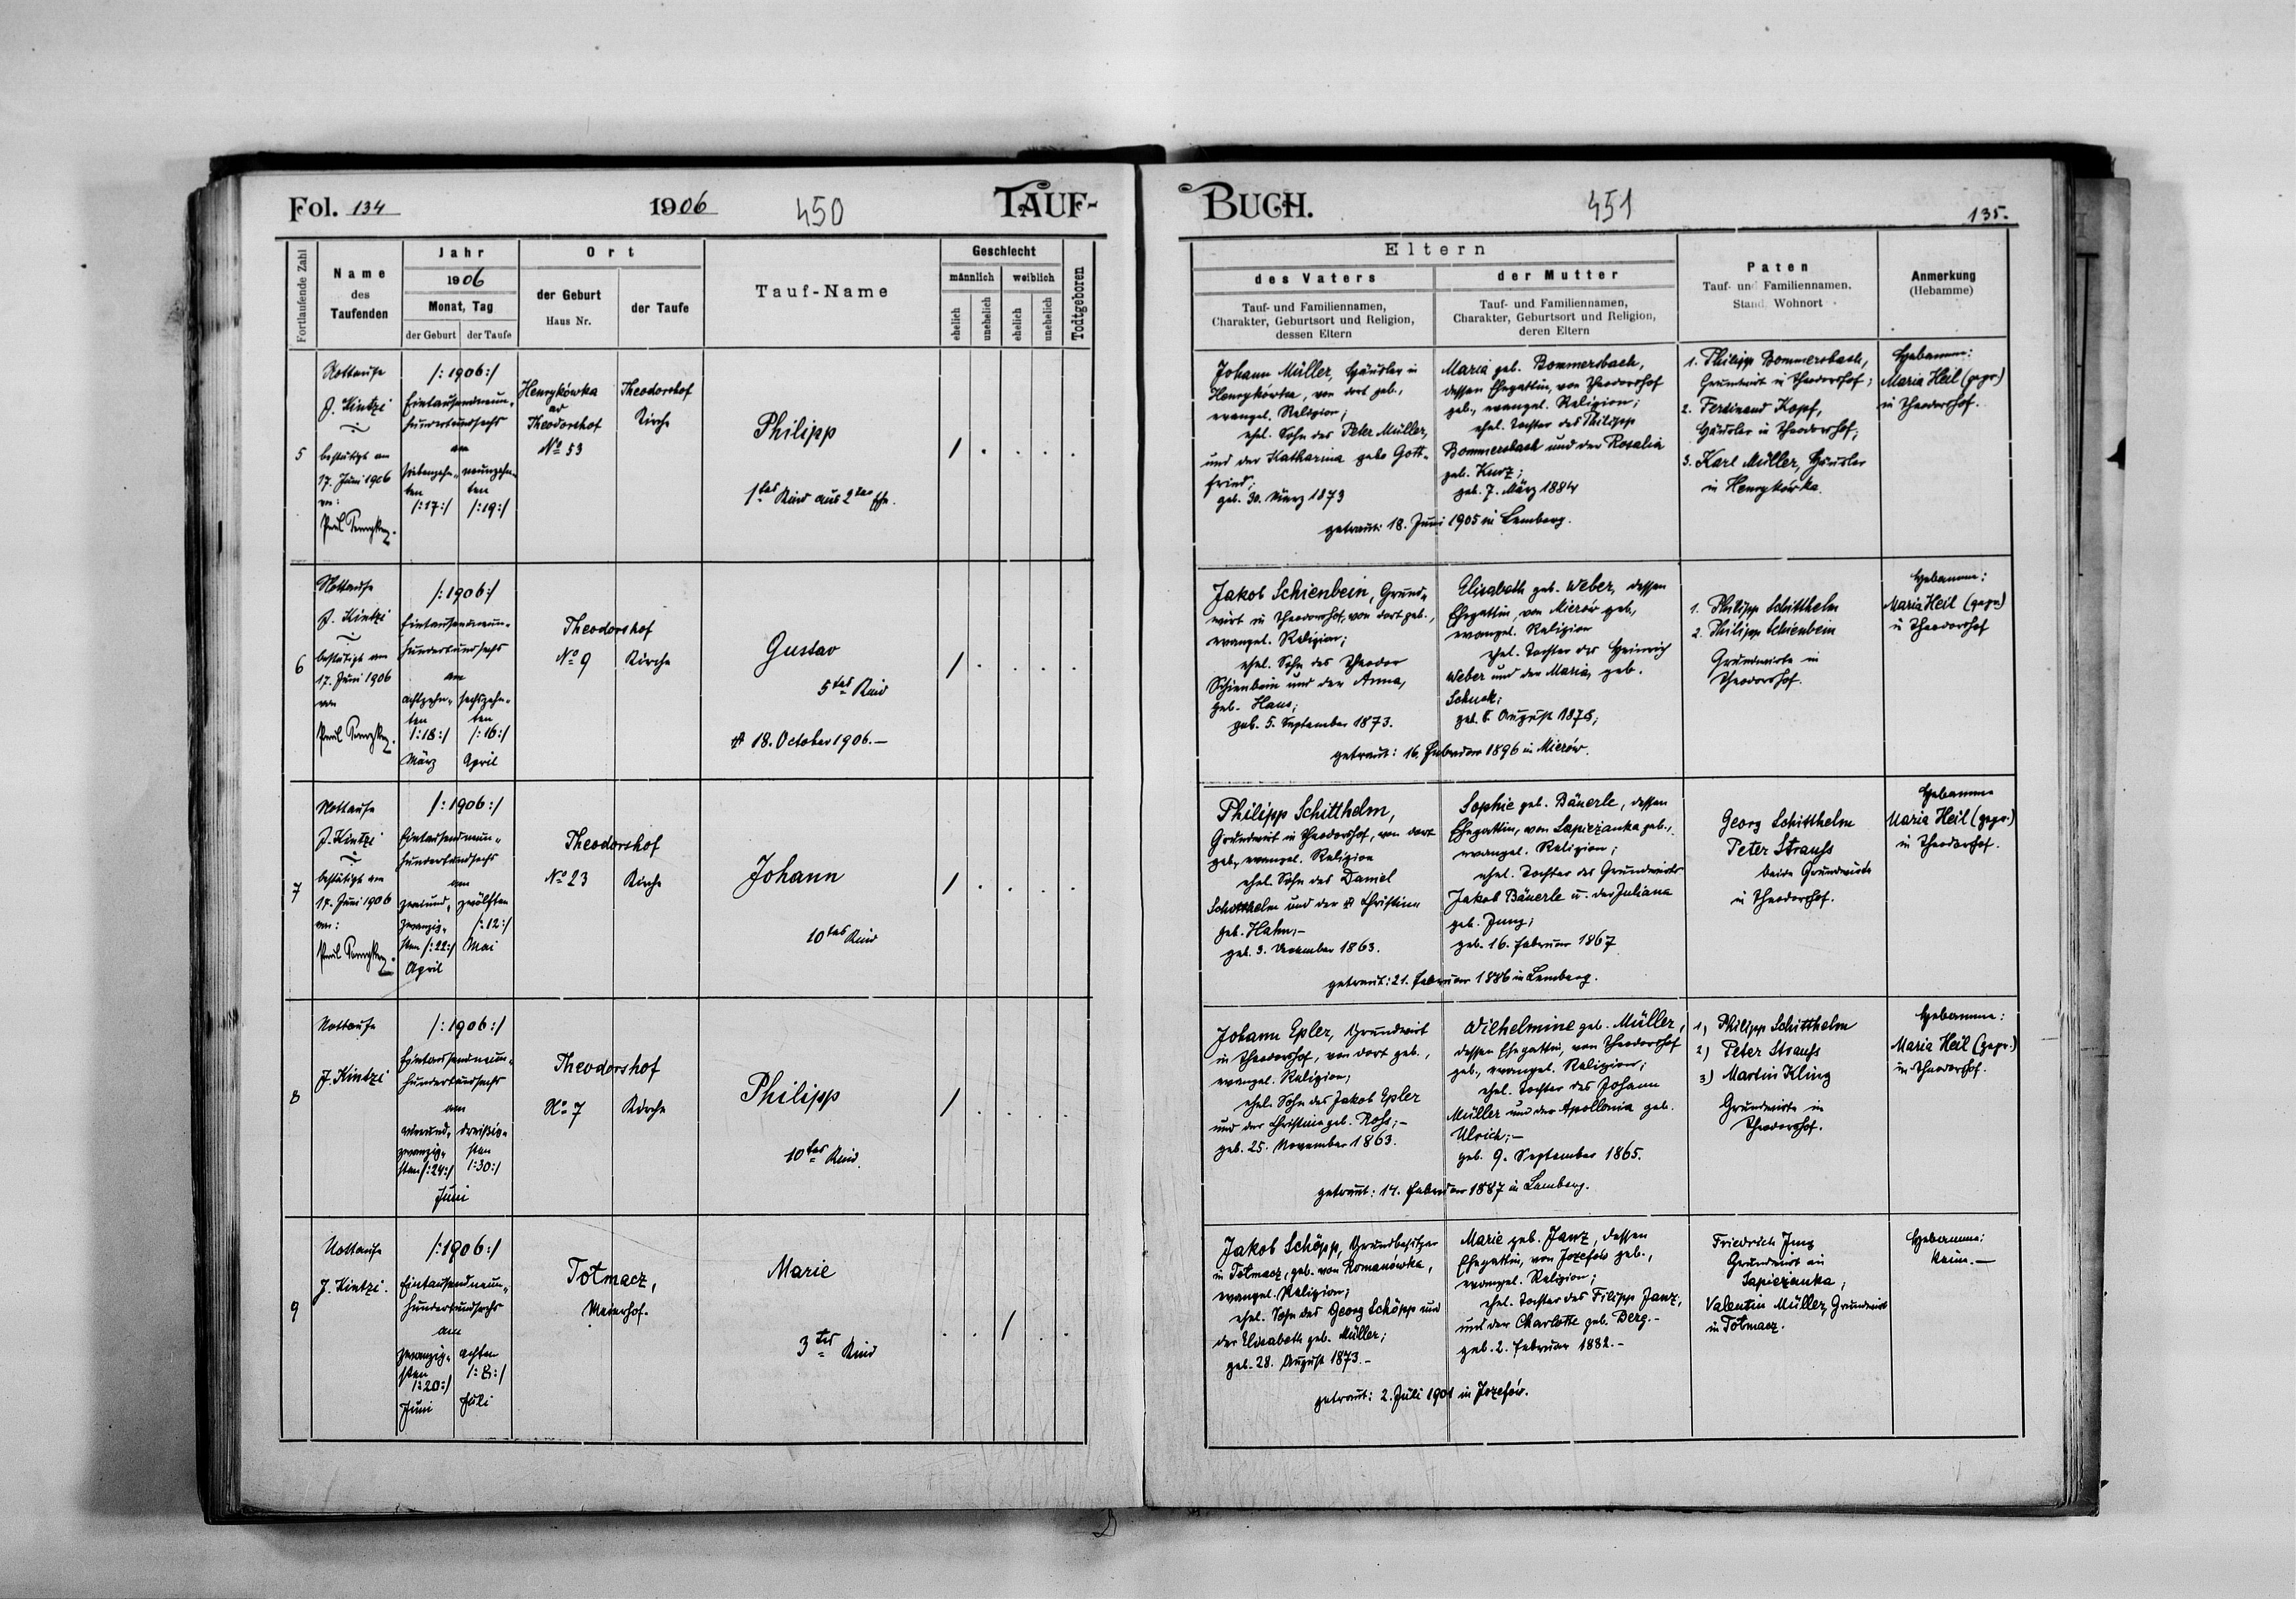 Fol. 134
1906
450
TAUF-
Fortlaufende Zahl
Name
des
Taufenden
Jahr
1906
Monat, Tag
der Geburt
der Taufe
Ort
der Geburt
Haus Nr.
der Taufe
Tauf-Name
Geschlecht
männlich
weiblich
ehelich
unehelich
ehelich
unehelich
Todtgeboren
5
Nottaufe
J. Kintzi
bestätigt am
17. Juni 1906
von:
/:1906:/
Eintausendneun-
hundertundsechs
am
siebenzehn-
ten
/:17:/
neunzehn-
ten
/:19:/
Henrykówka
ad
Theodorshof
No 53
Theodorshof
Kirche
Philipp
1tes Kind aus 2ter Ehe.
6
Nottaufe
J. Kintzi
bestätigt am
17. Juni 1906
von
/:1906:/
Eintausendneun-
hundertundsechs
am
achtzehn-
ten
/:18:/
März
sechszehn-
ten
/:16:/
April
Theodorshof
No 9
Kirche
Gustav
5tes Kind
18. October 1906.—
7
Nottaufe
J. Kintzi
bestätigt am
17. Juni 1906
von:
/:1906:/
Eintausendneun-
hundertundsechs
am
zweiund-
zwanzig-
sten /:22:/
April
zwölften
/:12:/
Mai
Theodorshof
No 23
Kirche
Johann
10tes Kind
8
Nottaufe
J. Kintzi
/:1906:/
Eintausendneun-
hundertundsechs
am
vierund-
zwanzig-
sten /:24:/
dreißig-
sten
/:30:/
Juni
Theodorshof
No 7
Kirche
Philipp
10tes Kind.
9
Nottaufe
J. Kintzi.
/:1906:/
Eintausendneun-
hundertundsechs
am
zwanzig-
sten
/:20:/
Juni
achten
/:8:/
Juli
Totmacz,
Meierhof.
Marie
3tes Kind
BUCH.
451
135.
Eltern
des Vaters
Tauf- und Familiennamen,
Charakter, Geburtsort und Religion,
dessen Eltern
der Mutter
Tauf- und Familiennamen,
Charakter, Geburtsort und Religion,
deren Eltern
Paten
Tauf- und Familiennamen,
Stand, Wohnort
Anmerkung
(Hebamme)
Johann Müller, Häusler in
Henrykówka, von dort geb.,
evangel. Religion;
ehel. Sohn des Peter Müller,
und der Katharina geb. Gott-
fried;
geb. 30. März 1873
Maria geb. Bommersbach,
dessen Ehegattin, von Theodorshof
geb., evangel. Religion;
ehel. Tochter des Philipp
Bommersbach und der Rosalia
geb. Kurz;
geb. 7. März 1884
getraut: 18. Juni 1905 in Lemberg.
1. Philipp Bommersbach,
Grundwirt in Theodorshof;
2. Ferdinand Kopf,
Häusler in Theodorshof;
3. Karl Müller, Häusler
in Henrykówka.
Hebamme:
Maria Heil (gepr.)
in Theodorshof.
Jakob Schienbein, Grund-
wirt in Theodorshof, von dort geb.,
evangel. Religion;
ehel. Sohn des Theodor
Schienbein und der Anna,
geb. Haus;
geb. 5. September 1873.
Elisabeth geb. Weber, dessen
Ehegattin, von Mierów geb.,
evangel. Religion
ehel. Tochter des Heinrich
Weber und der Maria, geb.
Schuck;
geb. 8. August 1875;
getraut: 16. Februar 1896 in Mierów.
1. Philipp Schitthelm
2. Philipp Schienbein
Grundwirte in
Theodorshof.
Hebamme:
Maria Heil (gepr.)
in Theodorshof
Philipp Schitthelm,
Grundwirt in Theodorshof, von dort
geb., evangel. Religion
ehel. Sohn des Daniel
Schitthelm und der Christina
geb. Hahn;-
geb. 3. Dezember 1863.
Sophie geb. Bäuerle, dessen
Ehegattin, von Sapiezanka geb.,
evangel. Religion;
ehel. Tochter des Grundwirts
Jakob Bäuerle u. der Juliana
geb. Jung;
geb. 16. Februar 1867
getraut: 21. Februar 1886 in Lemberg.
Georg Schitthelm
Peter Strauss
beide Grundwirte
in Theodorshof.
Hebamme
Maria Heil (gepr.)
in Theodorshof.
Johann Epler, Grundwirt
in Theodorshof, von dort geb.,
evangel. Religion;
ehel. Sohn des Jakob Epler
und der Christine geb. Rohs;-
geb. 25. November 1863.
Wilhelmine geb. Müller,
dessen Ehegattin, von Theodorshof
geb., evangel. Religion;
ehel. Tochter des Johann
Müller und der Apollonia geb.
Ulrich;-
geb. 9. September 1865.
getraut: 14. Februar 1887 in Lemberg.
1) Philipp Schitthelm
2) Peter Strauss
3) Martin Kling
Grundwirte in
Theodorshof.
Hebamme:
Maria Heil (gepr.)
in Theodorshof.
Jakob Schöpp, Grundbesitzer
in Totmacz, geb. von Romanówka,
evangel. Religion;
ehel. Sohn des Georg Schöpp und
der Elisabeth geb. Müller;
geb. 28. August 1873.-
Marie geb. Janz, dessen
Ehegattin, von Jozefow geb.,
evangel. Religion;
ehel. Tochter des Filipp Janz,
und der Charlotte geb. Berg.-
geb. 2. Februar 1882.-
getraut: 2. Juli 1901 in Jozefów.
Friedrich Jung
Grundwirt in
Sapiezanka;
Valentin Müller, Grundwirt
in Totmacz.
Hebamme:
keine.—